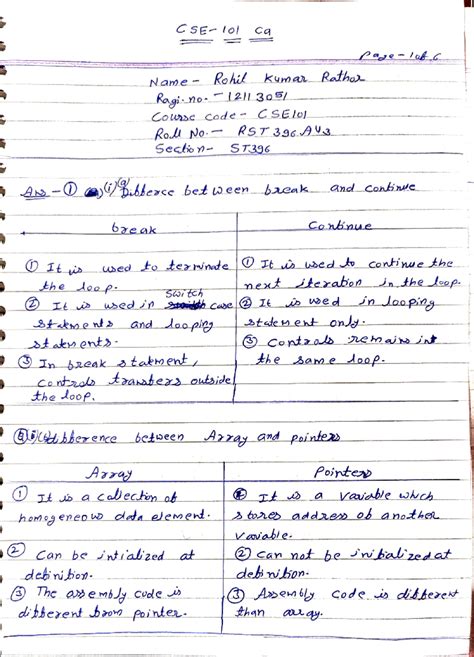 CSE-101 Ca
Page-1 of 6
Name - Rohil Kumar Rathor
Regi. no. - 12113051
Course code - CSE101
Roll No. - RST396.AU3
Section - ST396
Ans - ① (i) (a) Difference between break and continue
break
Continue
① It is used to terminate
the loop.
② It is used in switch case
statments and looping
statments.
③ In break statment,
controls transfers outside
the loop.
① It is used to continue the
next iteration in the loop.
② It is used in looping
statement only.
③ Controls remains int
the same loop.
difference between Array and pointers
Array
Pointers
① It is a collection of
homogeneous data element.
② Can be intialized at
definition.
③ The assembly code is
different from pointer.
① It is a variable which
stores address of another
variable.
② Can not be initialized at
definition.
③ Assembly code is different
than array.